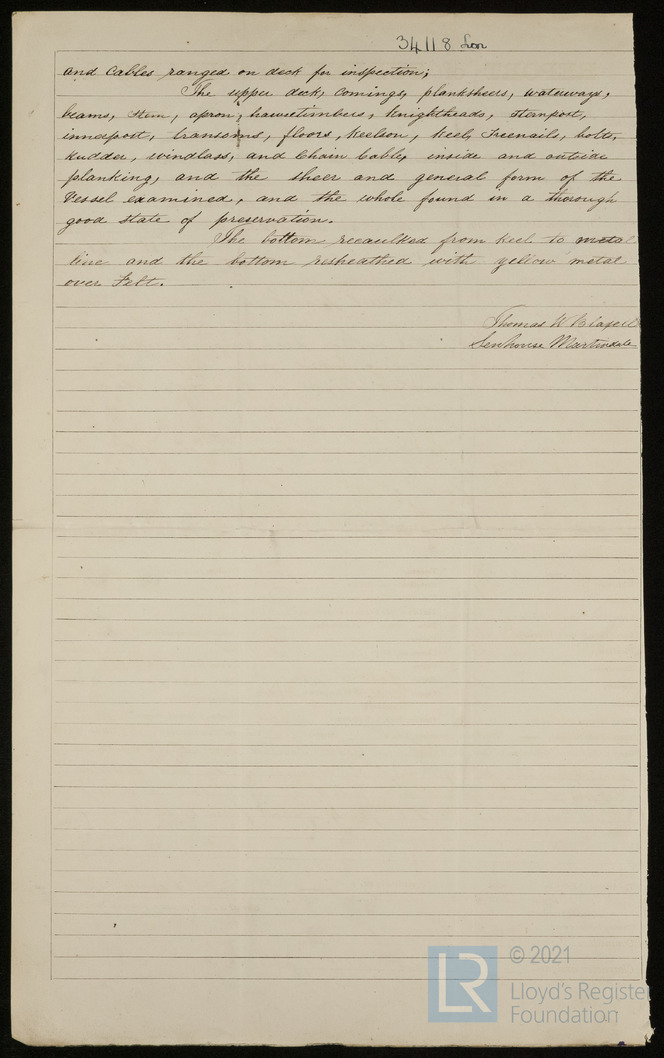 34118 Lon
and Cables ranged on deck for inspection;
The upper deck, comings, plansheers, waterways,
beams, stem, apron, hawsetimbers, Knightheads, sternpost,
innerpost, transoms, floors, keelson, keel, Treenails, bolts,
Rudder, windlass, and Chain Cables, inside and outside
planking, and the sheer and general form of the
Vessel examined, and the whole found in a thorough
good state of preservation.
The bottom recaulked from keel to metal
line and the bottom resheathed with yellow metal
over Felt.
Thomas W Blaxell
Senhouse Martindale
LR
© 2021
Lloyd's Register
Foundation